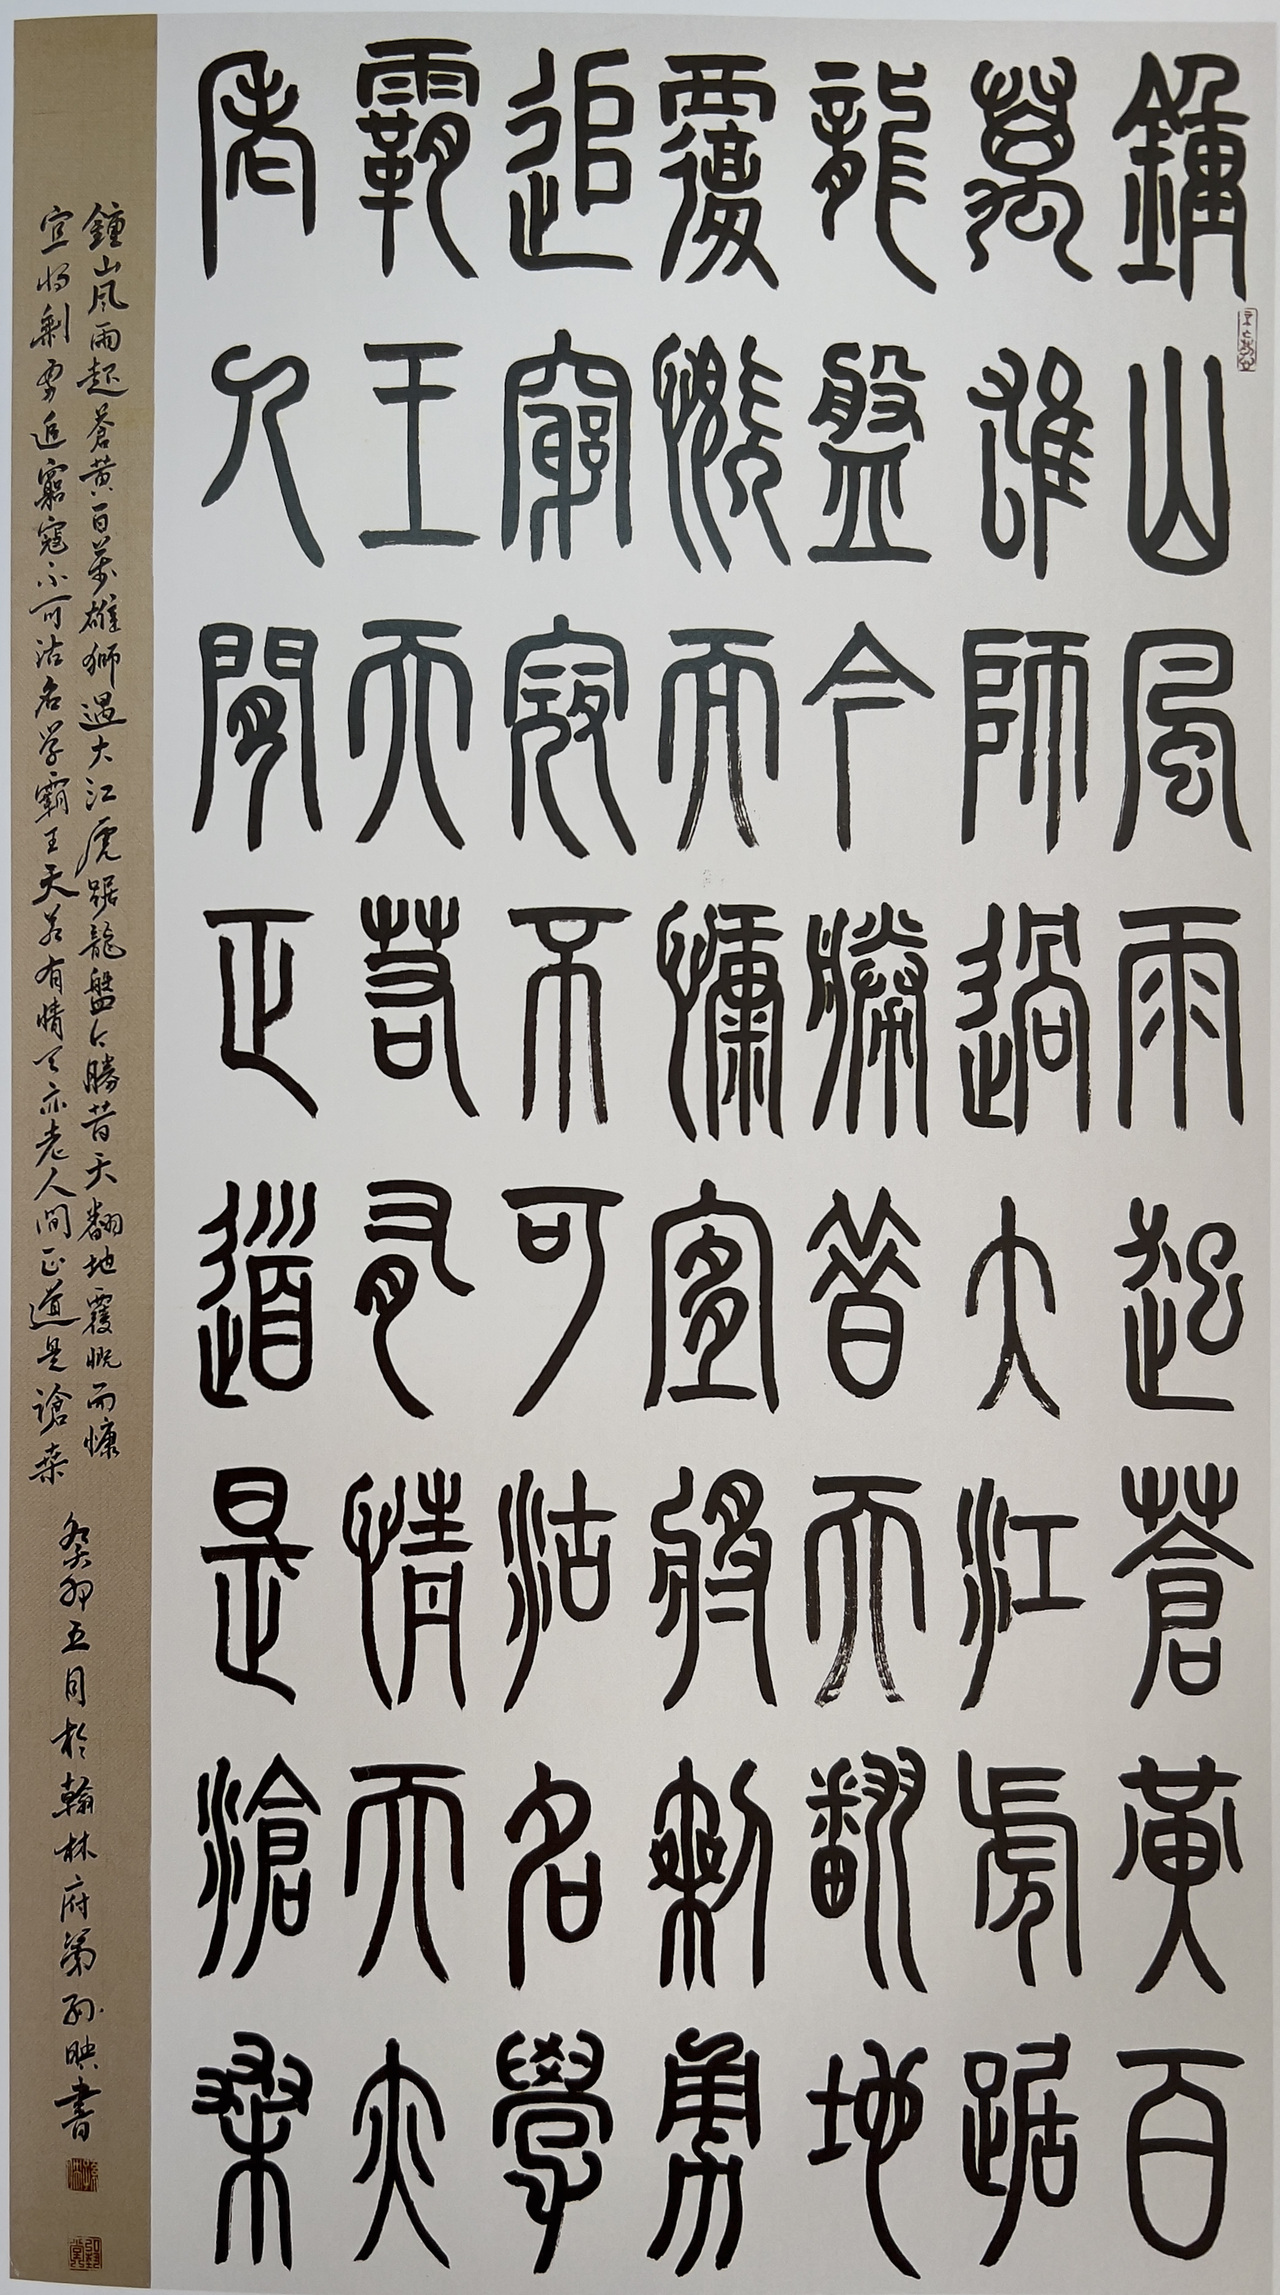 鍾山風雨起蒼黃百
萬雄師過大江虎踞
龍盤今勝昔天翻地
覆慨而慷宜將剩勇
追窮寇不可沽名學
霸王天若有情天亦
老人間正道是滄桑
鍾山風雨起蒼黃百萬雄獅過大江虎踞龍盤今勝昔天翻地覆慨而慷
宜將剩勇追窮寇不可沽名学霸王天若有情天亦老人間正道是滄桑
癸卯五月於翰林府第孙映書